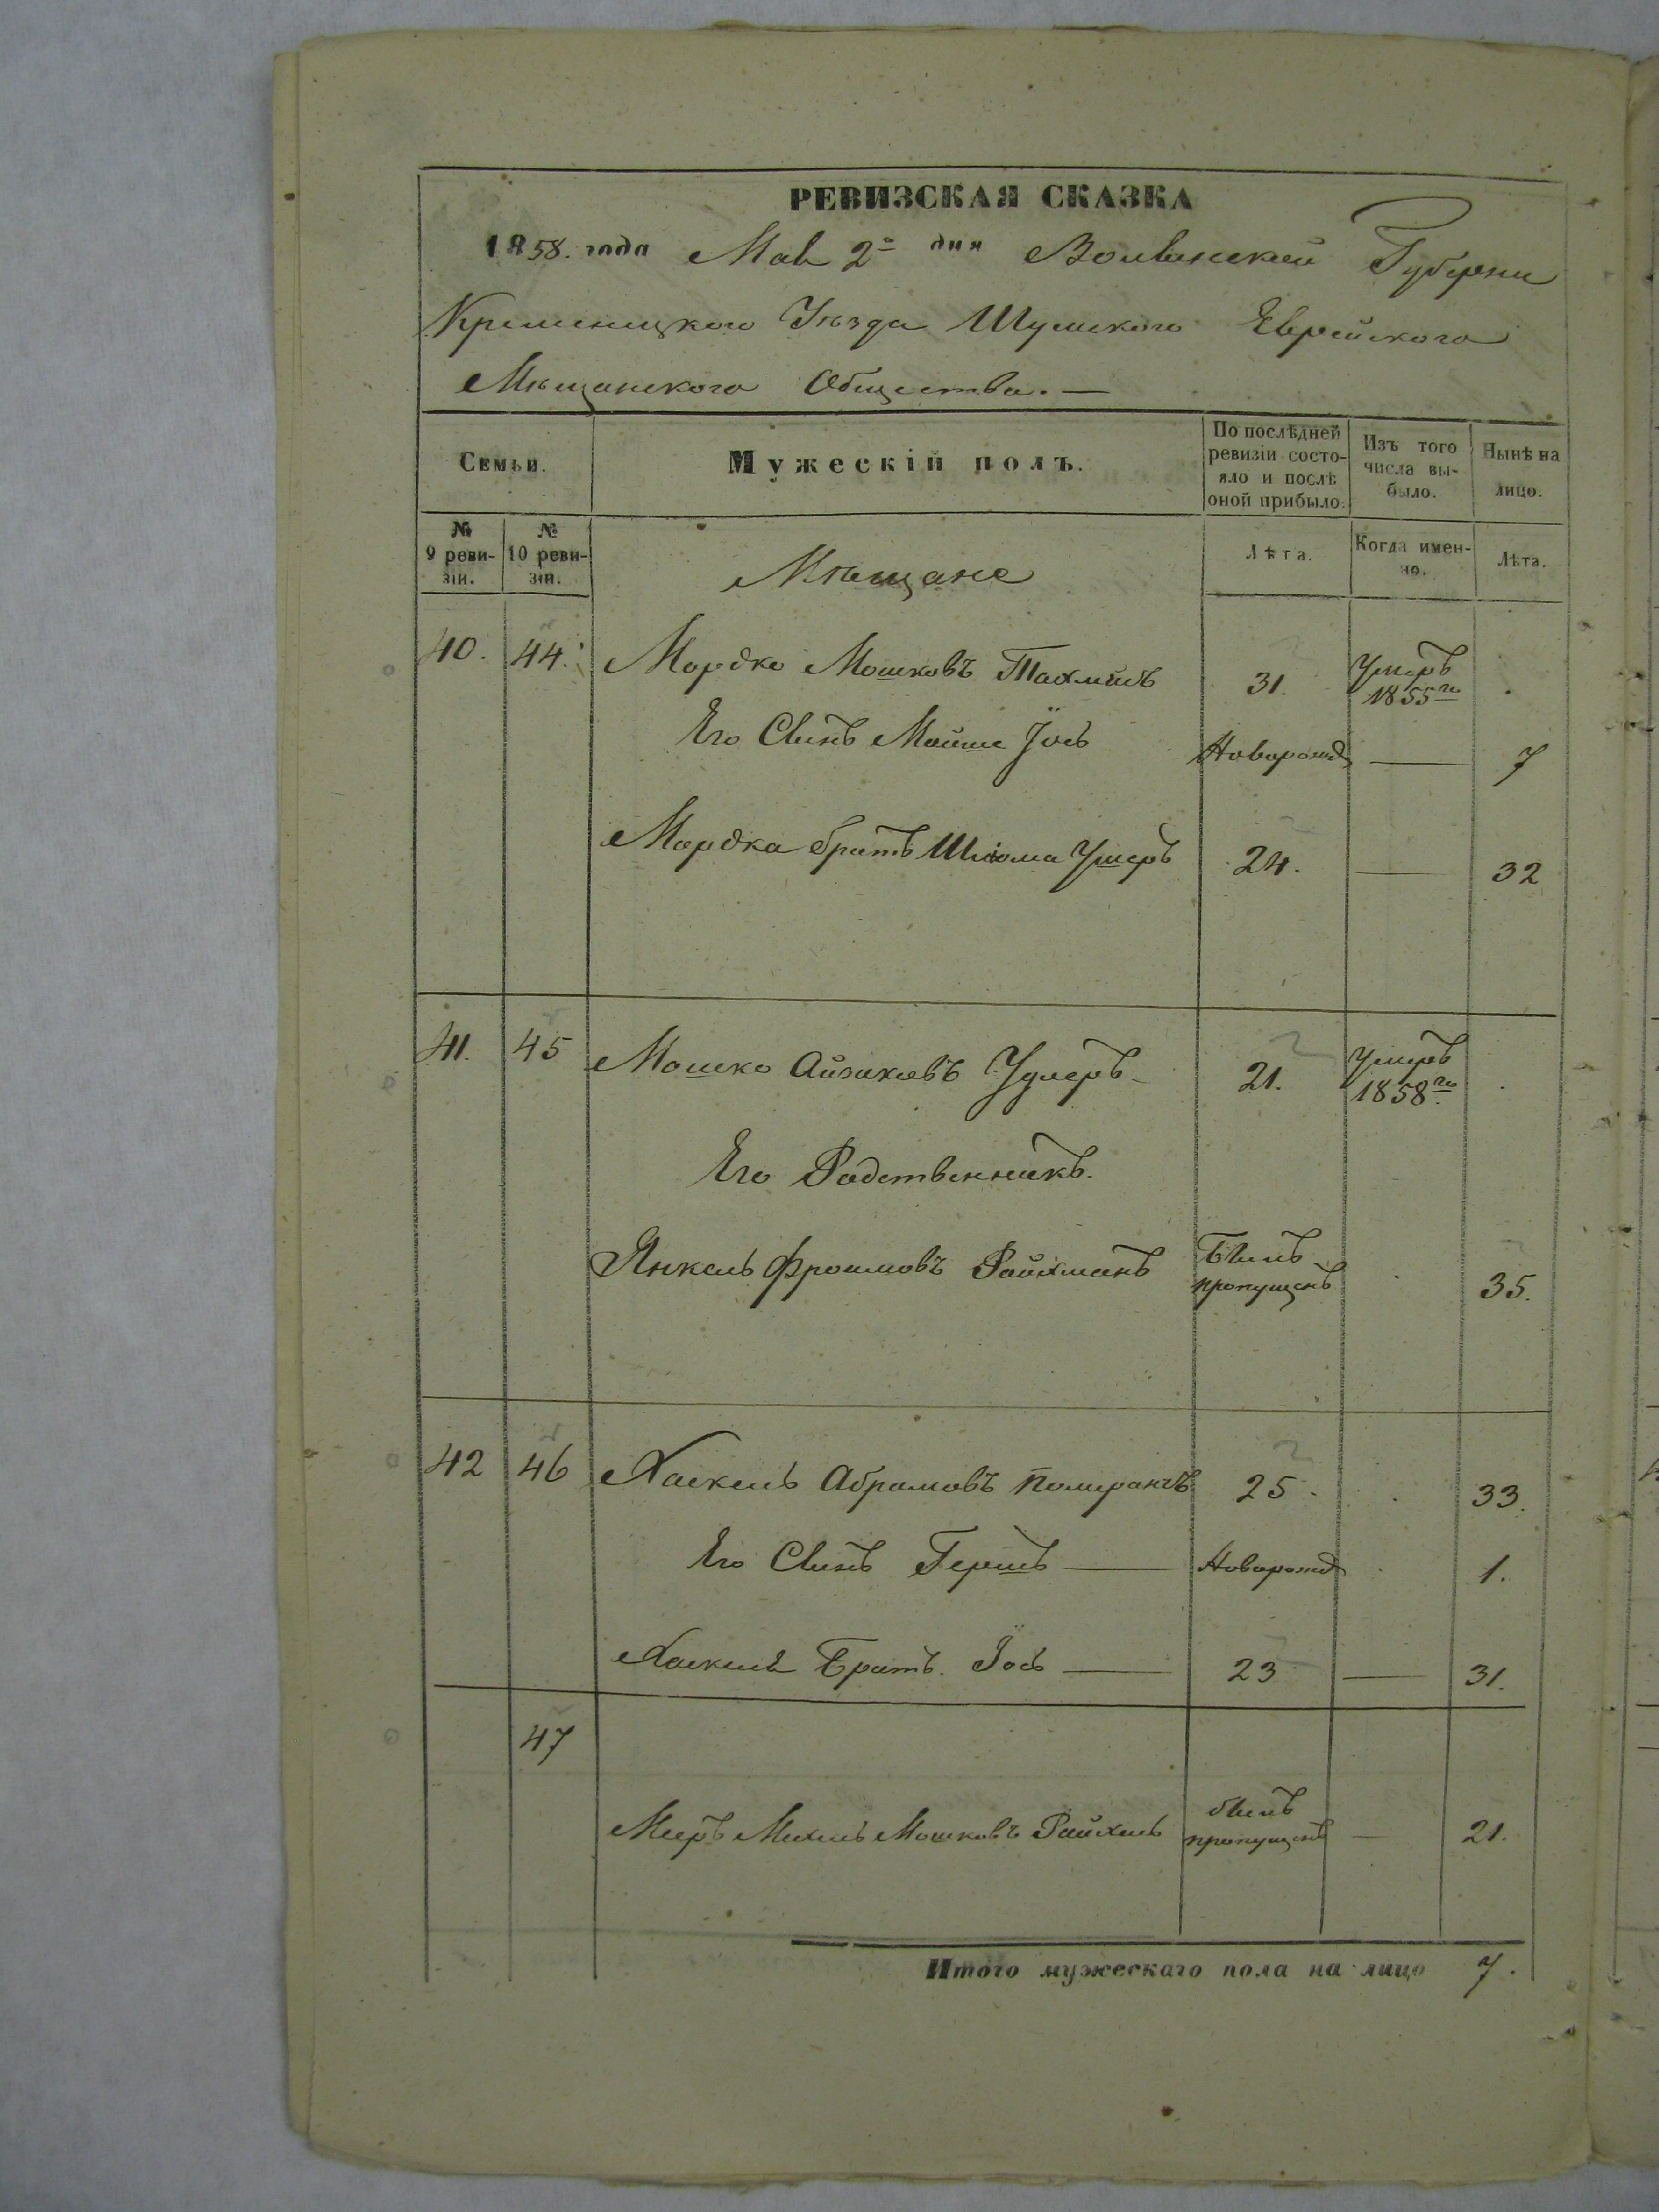 РЕВИЗСКАЯ СКАЗКА
1858. года Мая 2го дня Волынской Губерни
Кременецкого Уѣзда Шумского Еврейского
Мѣщанского Общества. —
Семьи.
Мужескій полъ.
По послѣдней ревизіи состояло и послѣ оной прибыло.
Изъ того числа выбыло.
Нынѣ на лицо.
№ 9 ревизіи.
№ 10 ревизіи.
Мѣщане
Лѣта.
Когда именно.
Лѣта.
40. 44. Мордко Мошковъ 31. Умеръ 1855го
Его Сынъ Мойше Іось Новорожд — 7
Мордка братъ Шлиома Ушеръ 24. — 32
41. 45 Мошко Айзиковъ 21. Умеръ 1858го
Его Родственникъ.
Янкель Фроимовъ Райхманъ Былъ пропущенъ 35.
42 46 Хаскель Абрамовъ Помиранцъ 25. 33.
Его Сынъ Гершъ — Новорожд 1.
Хаскеля Братъ. Іось — 23 — 31.
47
Мееръ Михель Мошковъ Райхель былъ пропущенъ — 21.
Итого мужескаго пола на лицо 7.